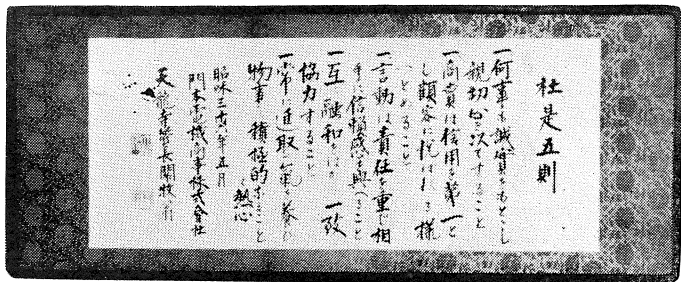 社是五則
一何事も誠実をもとゝし
親切が次てすること
一商売は信用を第一と
し顧客に悦はれる様
つとめること
一言動は責任を重じ相
手に信頼感を與へること
一互 融和をはかり 一致
協力すること
一常に進取の気を養ひ
物事 積極的なること
熱心
昭和三十六年五月
門本電機商事株式会社
天龍寺管長関牧